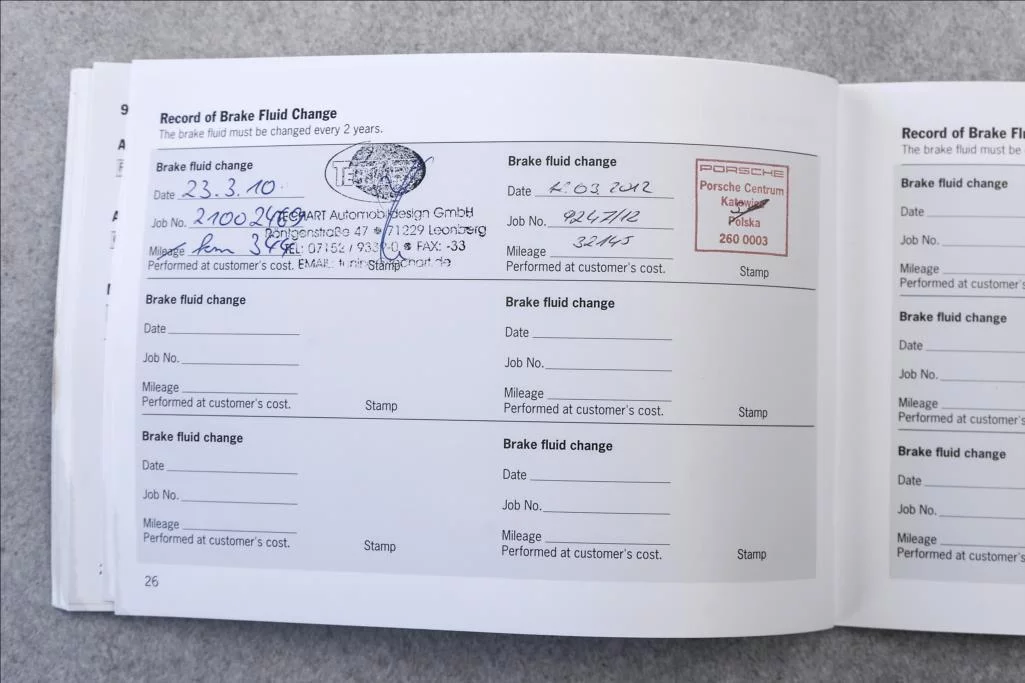 9
A
Record of Brake Fluid Change
The brake fluid must be changed every 2 years.
Brake fluid change
Date 23.3.10
Job No.
Mileage km
Performed at customer's cost.
Stamp
TECHART Automobildesign GmbH
Röntgenstraße 47 71229 Leonberg
TEL: 07152 / 9339-0 FAX: -33
EMAIL:
Brake fluid change
Date 12.03.2012
Job No. 9247/12
Mileage 32145
Performed at customer's cost.
Stamp
PORSCHE
Porsche Centrum
Katowice
Polska
260 0003
Brake fluid change
Date
Job No.
Mileage
Performed at customer's cost.
Stamp
Brake fluid change
Date
Job No.
Mileage
Performed at customer's cost.
Stamp
Brake fluid change
Date
Job No.
Mileage
Performed at customer's cost.
Stamp
Brake fluid change
Date
Job No.
Mileage
Performed at customer's cost.
Stamp
26
Record of Brake Fl
The brake fluid must be
Brake fluid change
Date
Job No.
Mileage
Performed at customer's
Brake fluid change
Date
Job No.
Mileage
Performed at customer's
Brake fluid change
Date
Job No.
Mileage
Performed at customer's